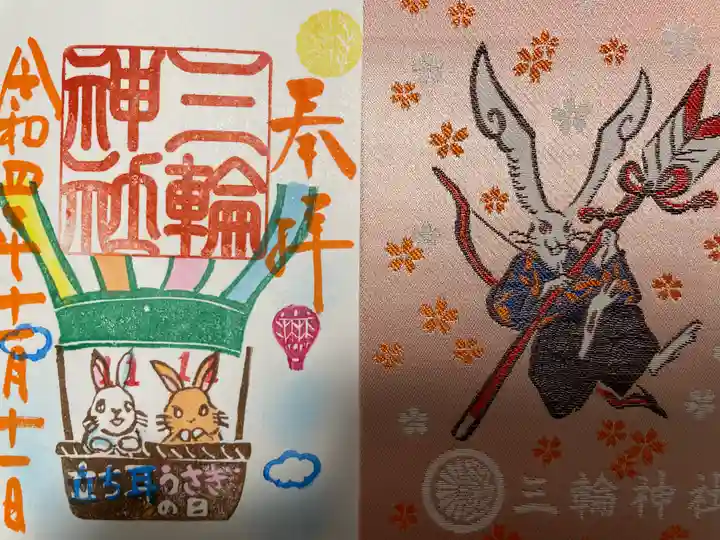 奉拝
三輪
神社
令和四年十一月十一日
11 11
立ち耳うさぎ
の日
三輪神社